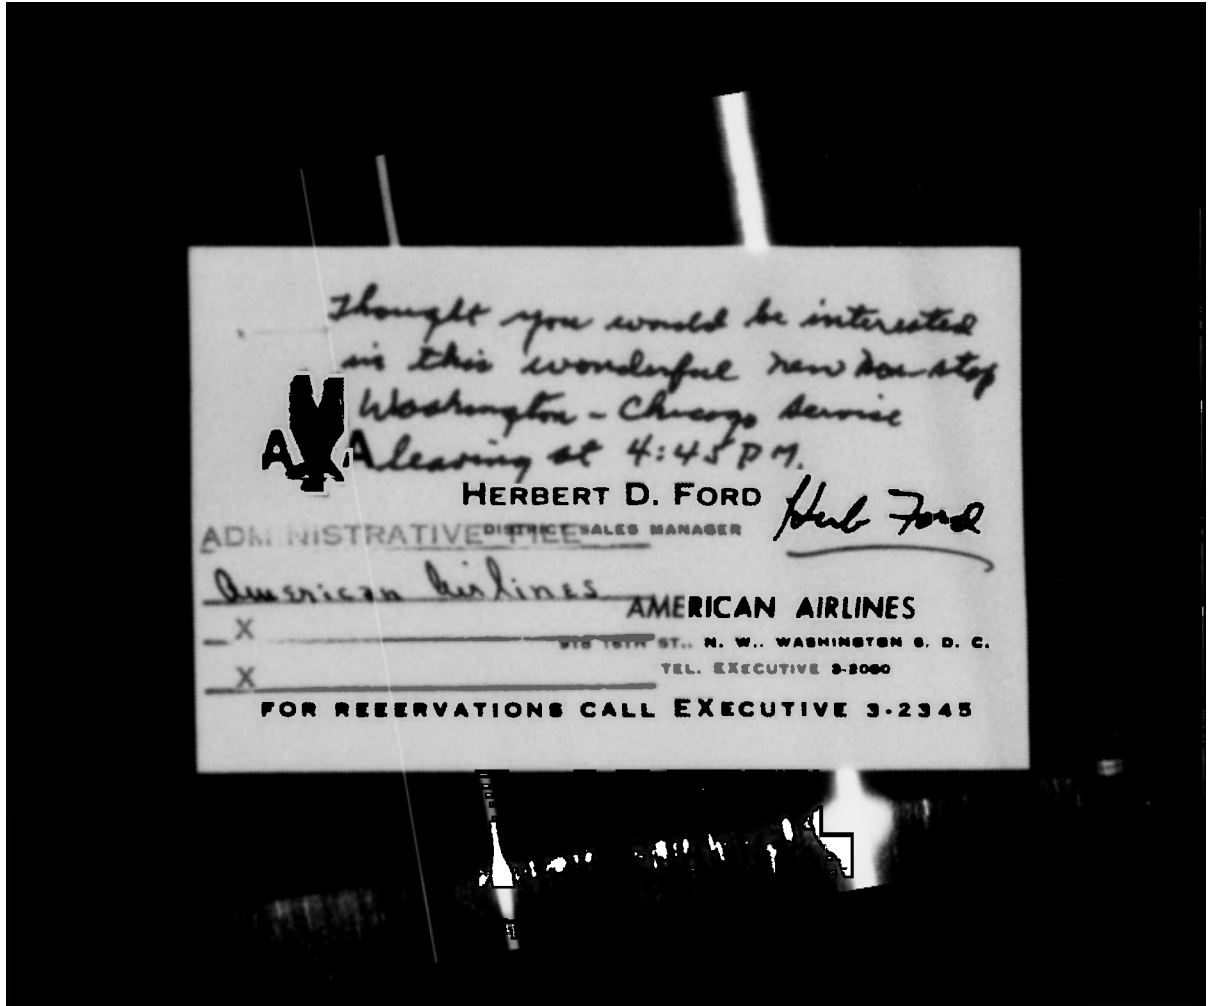 Thought you would be interested
in this wonderful new non stop
Washington - Chicago service
A A leaving at 4:45 PM.
HERBERT D. FORD Herb Ford
DISTRICT SALES MANAGER
ADMINISTRATIVE
American Airlines
AMERICAN AIRLINES
X
16TH ST., N. W., WASHINGTON 6, D. C.
TEL. EXECUTIVE 3-2060
X
FOR RESERVATIONS CALL EXECUTIVE 3-2345